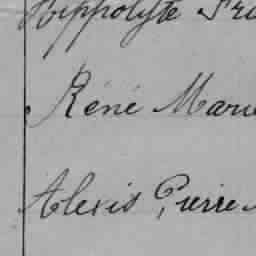 Hippolyte Fra
Réné Marie
Alexis Pierre